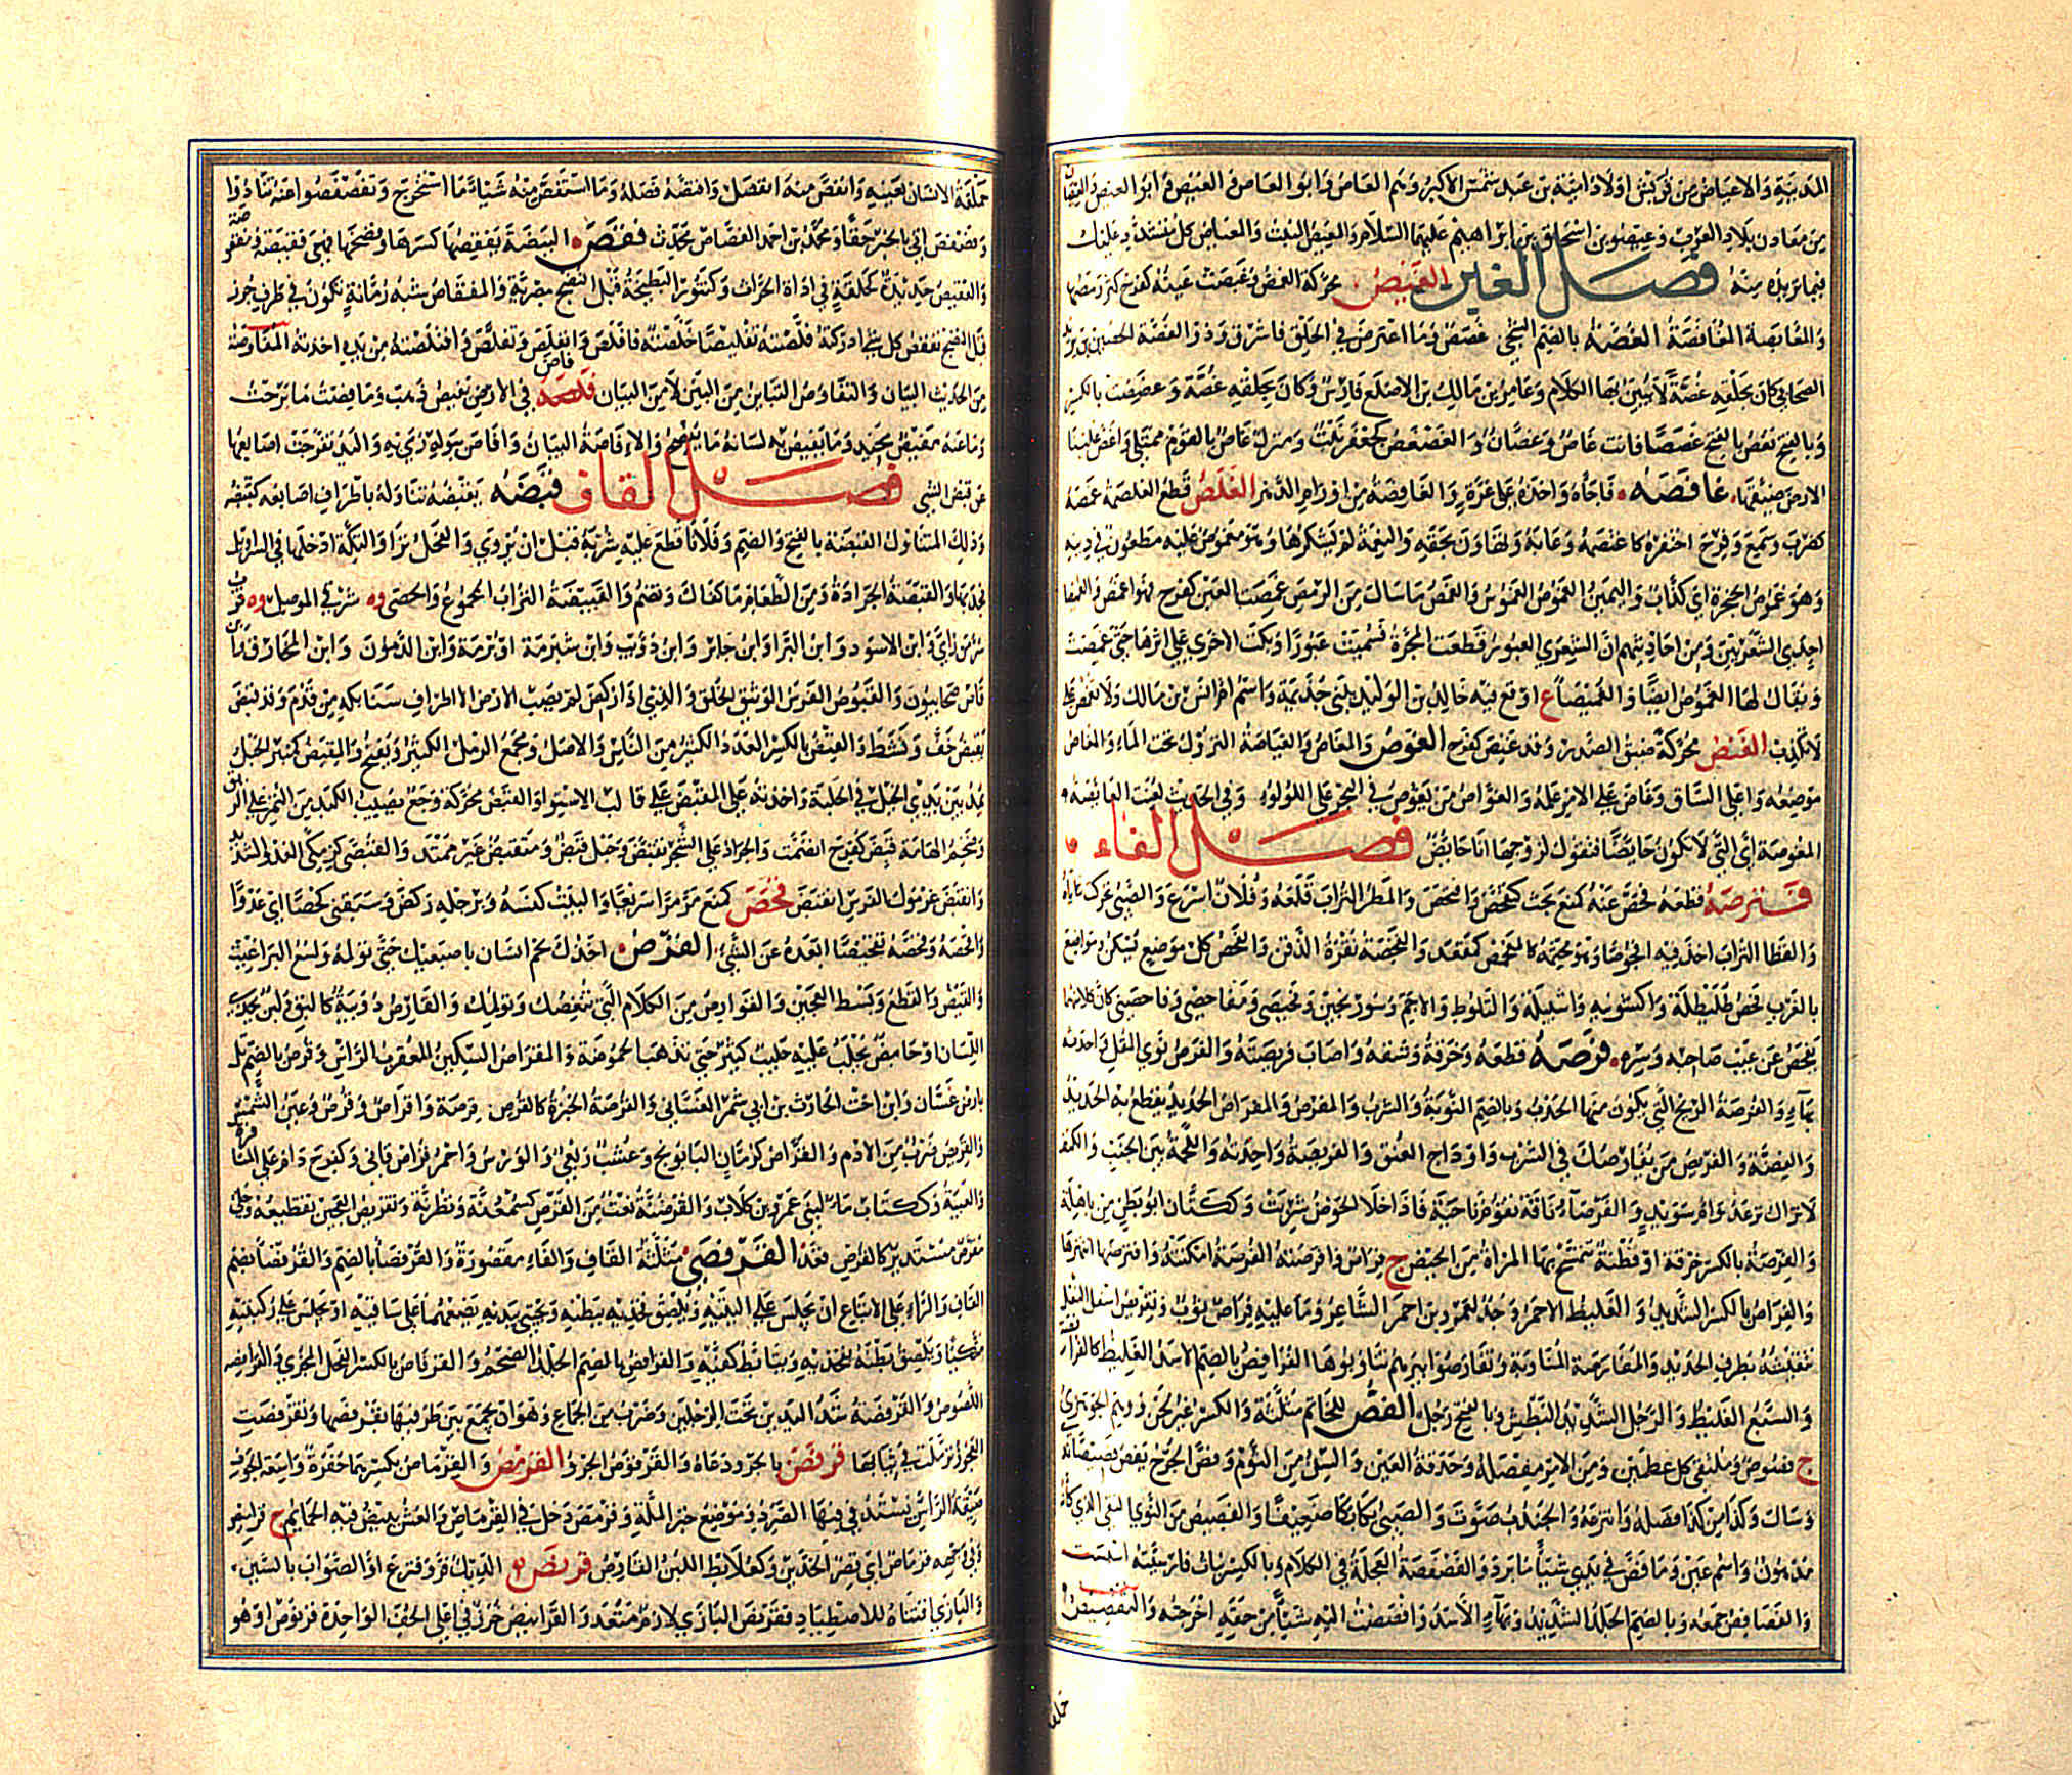 المدينية والاعياص من قريش اولاد امية بن عبد شمس الاكبر وهم العاص وابو العاص والعيص وابو العيص والعيصان
من معادن بلاد العرب وعيصو بن اسحاق بن ابراهيم عليهما السلام والعيص المنبت والعياص كل متشدد عليك
فيما تريده منه فصل الغين الغبص محركة الغمص وغبصت عينه كفرح كثر رمصها
والمغابصة المغافصة الغصة بالضم الشجى غصص وما اعترض في الحلق فاشرق وذو الغصة الحصين بن يزيد
الصحابي كان بحلقه غصة لا يبين بها الكلام وعامر بن مالك بن الاصلع فارس وكان بحلقه غصة وغصصت بالكسر
وبالفتح تغص بالفتح غصصا فانت غاص وغصان والغصغص كجعفر نبت ومنزل غاص بالقوم ممتلى واغص علينا
الارض ضيقها غافصه فاجأه واخذه على غرة والغافصة من اوازم الدهر الغلص قطع الغلصمة غمصه
كضرب وسمع وفرح احتقره كاغتمصه وعابه وتهاون بحقه والنعمة لم يشكرها وهو مغموص عليه مطعون في دينه
وهو غموص الحنجرة اي كذاب واليمين الغموص الغموس والغمص ما سال من الرمص غمصت العين كفرح فهو اغمص والغميصا
احدى الشعريين ومن احاديثهم ان الشعرى العبور قطعت المجرة فسميت عبورا وبكت الاخرى على اثرها حتى غمصت
ويقال لها الغموص ايضا والغميصاء ع اوقع فيه خالد بن الوليد ببني جذيمة واسم ام انس بن مالك ولا تغمص علي
لا تكذب الغنص محركة ضيق الصدر وقد غنص كفرح الغوص والمغاص والغياصة النزول تحت الماء والمغاص
موضعه واعلى الساق وغاص على الامر علمه والغواص من يغوص في البحر على اللؤلؤ وفي الحديث لعنت الغائصة و
المغوصة اي التي لا تكون حائضا فتقول لزوجها انا حائض فصل الفاء
فترصه قطعه فحص عنه كمنع بحث كتفحص وافتحص والمطر التراب قلعه وفلان اسرع والصبي تحركت ثناياه
والقطا التراب اتخذ فيه افحوصا وهو مجثمه كالمفحص كمقعد والفحصة نقرة الذقن والفحص كل موضع يسكن ومواضع
بالغرب فحص طليطلة واكشونية واشبيلة والبلوط والاجم وسورنجين وفحيصي ومفاحصي وفاحصني كان كلا منهما
يفحص عن عيب صاحبه وسره فرصه قطعه وخرقه وشقه واصاب فريصته والفرص نوى المقل واحدته
بهاء والفرصة الريح التي يكون منها الحدب وبالضم النوبة والشرب والمفرص والمفراص الحديد يقطع به الحديد
والفضة والفريص من يفارصك في الشرب واوداج العنق والفريصة واحدته واللحمة بين الجنب والكتف
لا تزال ترعد وام سويد والفرصاء ناقة تقوم ناحية فاذا خلا الحوض شربت وككتان ابو بطن من باهلة
والفرصة بالكسر خرقة او قطنة تتمسح بها المراة من الحيض ج فراص وافرصته الفرصة امكنته وافترصها انتهزها
والفراص بالكسر الشديد والغليظ الاحمر وجد لعمرو بن احمر الشاعر وما عليه فراص ثوب وتفريص اسفل النعل
تنقيشه بطرف الحديد والمفارصة المناوبة وتفارصوا بئرهم تناوبوها الفرافص بالضم الاسد الغليظ كالفرافصة
والسبع الغليظ والرجل الشديد البطش وبالفتح رجل الفص للخاتم مثلثة والكسر غير لحن ووهم الجوهري
ج فصوص وملتقى كل عظمين ومن الامر مفصله وحدقة العين والسن من الثوم وفص الجرح يفص فصيصا ندى
وسال وكذا من كذا فصله وانتزعه والجندب صوت والصبي بكى بكا ضعيفا والفصيص من النوى النقي الذي كانه
مدهون واسم عين وما فص في يدي شيأ ما برد والفصفصة العجلة في الكلام وبالكسر نبات فارسيته اسبست
والفصافص جمعه وبالضم الجلد الشديد وبهاء الاسد وافصصت اليه شيأ من حقه اخرجته والتفصيص
حملقة الانسان بعينيه وانفص منه انفصل وافتصه فصله وما استفص منه شيأ ما استخرج وتفصفصوا عنه تنادوا
وفصفص اتى بالخبر حقا ومحمد بن احمد الفصاص محدث فقص البيضة يفقصها كسرها وفضخها فهي فقيصة ومفقوصة
والفقيص حديدة كحلقة في اداة الحراث وكتنور البطيخة قبل النضج مصرية والمفقاص شبه رمانة تكون في طرف جرز
قبل النضج تفقص كل شئ ادركته فلصته تفليصا خلصته فافلص وانفلص وتفلص وافتلصته من يده اخذته المفاوصة
من الحديث البيان والتفاوص التباين من البين لا من البيان فاص في الارض يفيص ذهب وما فصت ما برحت
وما عنه مفيص محيد وما يفيص به لسانه ما يفصح والافاصة البيان وافاص ببوله رمى به واليد تفرجت اصابعها
عن قبض الشي فصل القاف قبصه يقبصه تناوله باطراف اصابعه كقبصه
وذلك المتناول القبصة بالفتح والضم وفلانا قطع عليه شربه قبل ان يروى والفحل نزا والتكة ادخلها في السراويل
فجذبها والقبصة الجرادة ومن الطعام ما حملت كفاك وتضم والقبيصة التراب المجموع والحصى وه شرقي الموصل وه قرب
سر من راى وابن الاسود وابن البراء وابن جابر وابن ذؤيب وابن شبرمة او برمة وابن الدمون وابن المخارق وابن وقاص
صحابيون والقبوص الفرس الوثيق الخلق والذي اذا ركض لم يصب الارض الا اطراف سنابكه من قدم وقد قبص
يقبص خف ونشط والقبص بالكسر العدد الكثير من الناس والاصل ومجمع الرمل الكثير ويفتح والمقبص كمنبر الحبل
يمد بين يدي الخيل في الحلبة واخذته على المقبص على قالب الاستواء والقبص محركة وجع يصيب الكبد من التمر على الريق
وضخم الهامة قبص كفرح انفتحت والجراد على الشجر تقبص وحبل قبص ومتقبص غير ممتد والقبصى كزمكى العدو الشديد
وانقبض غرمول الفرس انقبص قحص كمنع مر مرا سريعا والبيت كنسه وبرجله ركض وسبقني قحصا اي عدوا
واقحصه وقحصه تقحيصا ابعده عن الشي القرص اخذك لحم انسان باصبعيك حتى تؤلمه ولسع البراغيث
والقبض والقطع وبسط العجين والقوارص من الكلام التي تنغصك وتؤلمك والقارص دويبة كالبق ولبن يحذى
اللسان او حامض يحلب عليه حليب كثير حتى تذهب الحموضة والمقراص السكين المعقرب الراس وقرص بالضم تل
بارض غسان وابن اخت الحارث بن ابي شمر الغساني والقرصة الخبزة كالقرص قرصة واقراص وقرص وعين الشمس
والقريص ضرب من الادم والقراص كرمان البابونج وعشب ربعي والورس واحمر قراص قانى وكفرح دام على المقارصة
والغيبة وككتاب ماء لبني عمرو بن كلاب والقرصنة نعت من القرص كسمعنة ونظرنة وتقريص العجين تقطيعه وحلي
مقرص مستدير كالقرص قعد القرفصى مثلثة القاف والفاء مقصورة والقرفصا بالضم والقرفصا بضم
القاف والراء على الاتباع ان يجلس على اليتيه ويلصق فخذيه ببطنه ويحتبي بيديه يضعهما على ساقيه او يجلس على ركبتيه
متكيا ويلصق بطنه بفخذيه ويتابط كفيه والقرافص بالضم الجلد الضخم والقرفاص بالكسر الفحل المجزئ والقرافصة
اللصوص والقرفصة شد اليدين تحت الرجلين وضرب من الجماع وهو ان يجمع بين طرفيها يقرفصها وتقرفصت
العجوز تزملت في ثيابها قرقص بالجرو دعاه والقرقوص الجرو القرمص والقرماص بكسرهما حفرة واسعة الجوف
ضيقة الراس يستدفى فيها الصرد وموضع خبز الملة وقرمص دخل في القرماص والعش يبيض فيه الحمام ج قراميص
وفي وجهه قرماص اي قصر الخدين وكعلابط اللبن القارص قرنص الديك فر وقنزع او الصواب بالسين
والبازي اقتناه للاصطياد فقرنص البازي لازم متعد والقرانيص خرز في اعلى الخف الواحدة قرنوص او هو
حملقة